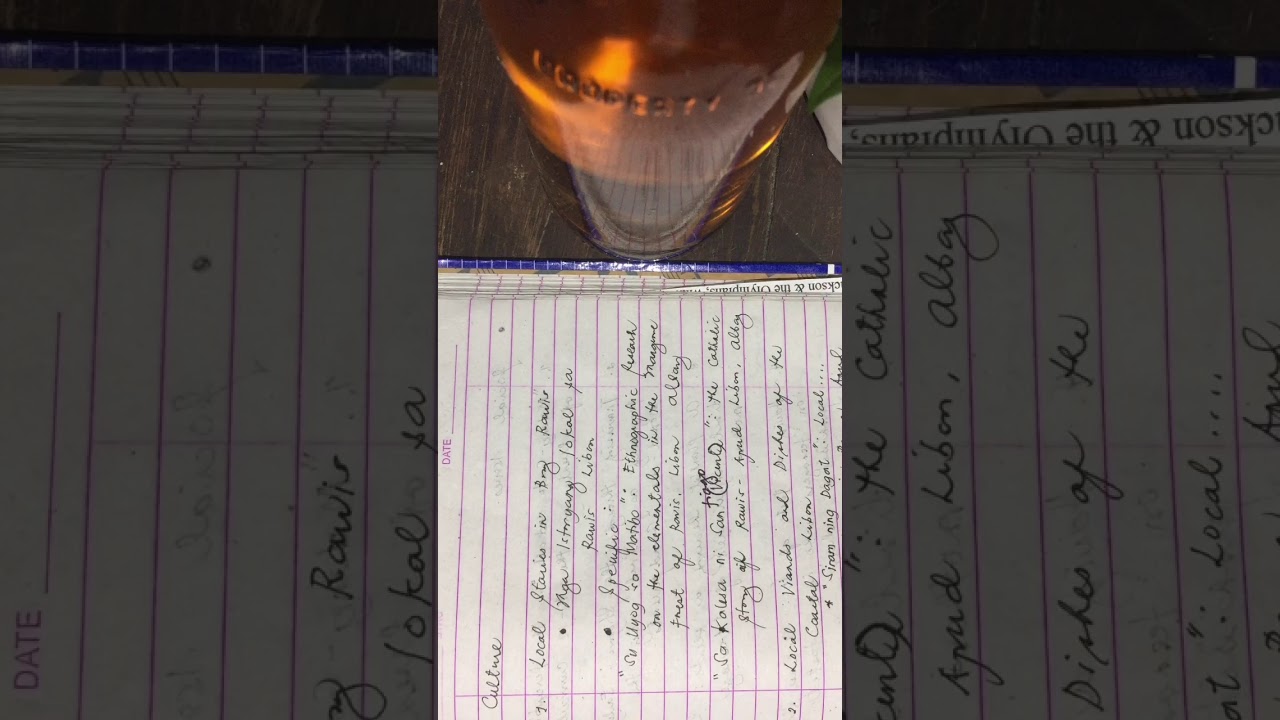 PROPERTY
ckson & the Olympians,
DATE
Culture
1. Local Stories in Brgy Rawis
• Mga Istoryang lokal sa
Rawis Libon
• Specific:
"Su Uyog sa Matibo": Ethnographic
on the elementals in the Mangune
treat of Rawis, Libon Albay
"Sa Kalesia ni San
Santiago": the Catholic
story of Rawis - Apud Libon, Albay
2. Local Viands and Dishes of the
Coastal Libon
* "Siram ning Dagat": Local....